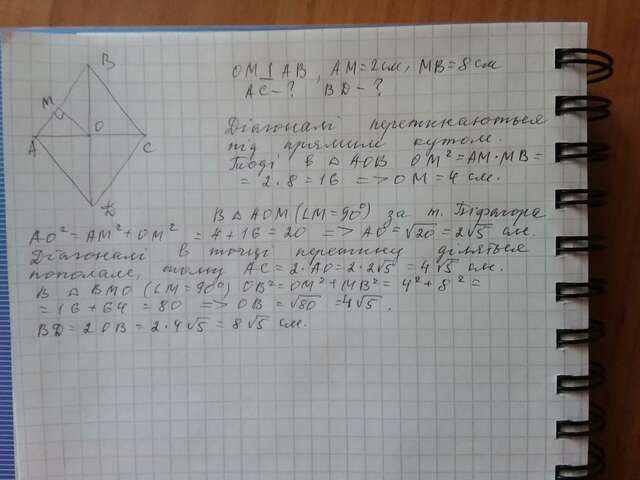 B
M
O
A
C
D
OM⊥AB, AM=2см, MB=8см
AC-? BD-?
Діагоналі перетинаються
під прямим кутом.
Тоді в △AOB OM²=AM·MB=
=2·8=16 => OM=4 см.
В △AOM (∠M=90°) за т. Піфагора
AO²=AM²+OM²=4+16=20 => AO=√20=2√5 см.
Діагоналі в точці перетину діляться
пополам, тому AC=2·AO=2·2√5=4√5 см.
В △BMO (∠M=90°) OB²=OM²+MB²=4²+8²=
=16+64=80 => OB=√80=4√5.
BD=2OB=2·4√5=8√5 см.